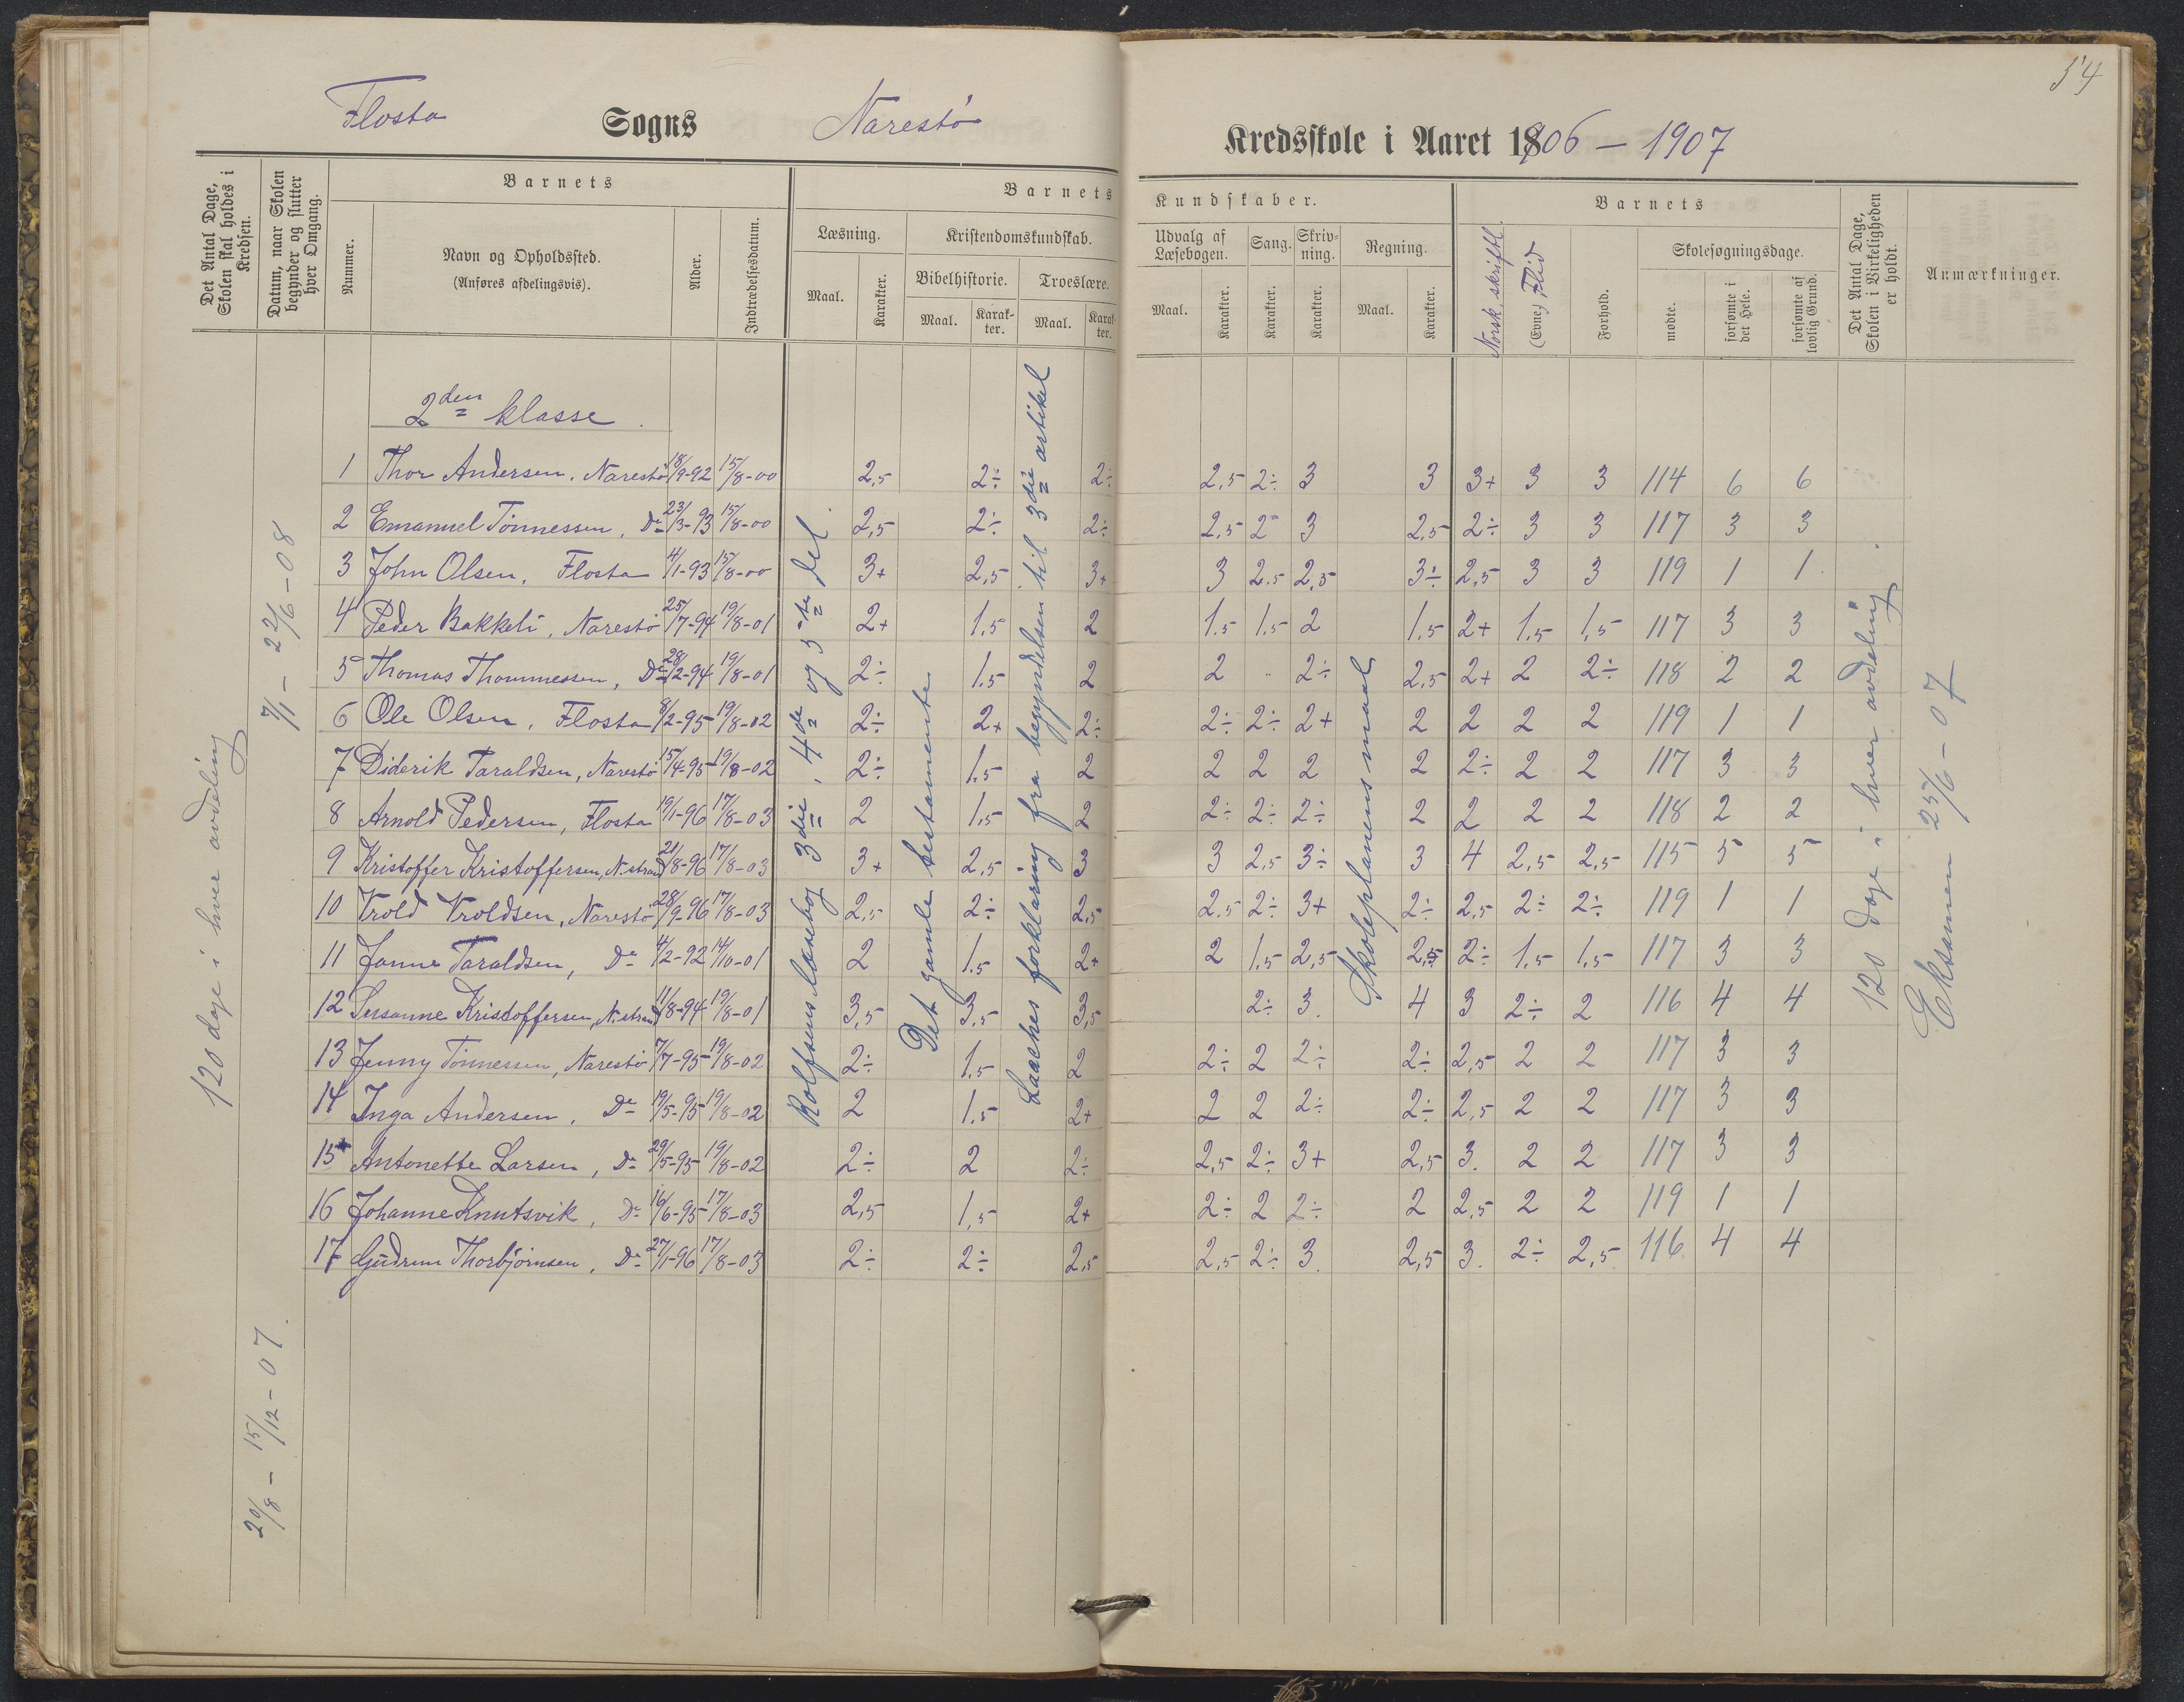 54
Flosta Sogns Narestö Kredsskole i Aaret 1906 - 1907
Det Antal Dage, Skolen skal holdes i Kredsen.
Datum, naar Skolen begynder og slutter hver Omgang.
Barnets
Nummer.
Navn og Opholdssted.
(Anføres afdelingsvis).
Alder.
Indtrædelsesdatum.
Barnets Kundskaber.
Læsning.
Maal.
Karakter.
Kristendomskundskab.
Bibelhistorie.
Maal.
Karakter.
Troeslære.
Maal.
Karakter.
Udvalg af Læsebogen.
Maal.
Karakter.
Sang.
Karakter.
Skrivning.
Karakter.
Regning.
Maal.
Karakter.
Barnets
Norsk, skriftl.
(Evne) Flid
Forhold.
Skolesøgningsdage.
mødte.
forsømte i det Hele.
forsømte af lovlig Grund.
Det Antal Dage, Skolen i Virkeligheden er holdt.
Anmærkninger.
2den klasse
1 Thor Andersen, Narestö 18/9-92 15/8-00 2,5 2÷ 2÷ 2,5 2÷ 3 3 3+ 3 3 114 6 6
2 Emanuel Tönnessen, Do 23/3-93 15/8-00 2,5 2÷ 2÷ 2,5 2- 3 2,5 2÷ 3 3 117 3 3
3 John Olsen, Flosta 4/1-93 15/8-00 3+ 2,5 3+ 3 2,5 2,5 3÷ 2,5 3 3 119 1 1
4 Peder Bakkeli, Narestö 25/7-94 19/8-01 2+ 1,5 2 1,5 1,5 2 1,5 2+ 1,5 1,5 117 3 3
5 Thomas Thommessen, Do 28/2-94 19/8-01 2÷ 1,5 2 2 - 2÷ 2,5 2+ 2 2÷ 118 2 2
6 Ole Olsen, Flosta 8/2-95 19/8-02 2÷ 2+ 2÷ 2÷ 2÷ 2+ 2 2 2 2 119 1 1
7 Diderik Taraldsen, Narestö 15/4-95 19/8-02 2÷ 1,5 2 2 2 2 2 2÷ 2 2 117 3 3
8 Arnold Pedersen, Flosta 19/1-96 17/8-03 2 1,5 2 2÷ 2÷ 2÷ 2 2 2 2 118 2 2
9 Kristoffer Kristoffersen, N.strand 21/8-96 17/8-03 3+ 2,5 3 3 2,5 3÷ 3 4 2,5 2,5 115 5 5
10 Trold Troldsen, Narestö 28/9-96 17/8-03 2,5 2÷ 2,5 2,5 2÷ 3+ 2÷ 2,5 2÷ 2÷ 119 1 1
11 Janna Taraldsen, Do 4/2-92 14/10-01 2 1,5 2+ 2 1,5 2,5 2,5 2÷ 1,5 1,5 117 3 3
12 Susanne Kristoffersen, N.strand 11/8-94 19/8-01 3,5 3,5 3,5 2÷ 3. 4 3 2÷ 2 116 4 4
13 Jenny Tönnessen, Narestö 7/7-95 19/8-02 2÷ 1,5 2 2÷ 2 2÷ 2÷ 2,5 2 2 117 3 3
14 Inga Andersen, Do 19/5-95 19/8-02 2 1,5 2+ 2 2 2÷ 2÷ 2,5 2 2 117 3 3
15 Antonette Larsen, Do 29/5-95 19/8-02 2÷ 2 2÷ 2,5 2÷ 3+ 2,5 3. 2 2 117 3 3
16 Johanne Knutsvik, Do 16/6-95 17/8-03 2,5 1,5 2+ 2÷ 2 2÷ 2 2,5 2 2 119 1 1
17 Gudrun Thorbjörnsen, Do 27/1-96 17/8-03 2÷ 2÷ 2,5 2,5 2÷ 3. 2,5 3. 2÷ 2,5 116. 4 4
120 dage i hver avdeling
20/8 - 15/12 - 07.
7/1 - 22/6 - 08
Rolfsens læsebog 3die, 4de og 5te del.
Det gamle testamente
Laaches forklaring fra begyndelsen til 3die artikel
Skoleplanens maal
120 dage i hver avdeling.
Eksamen 25/6 - 07